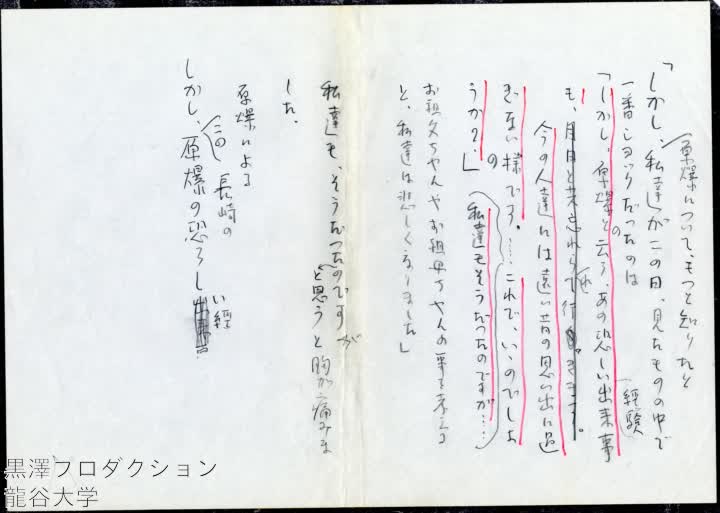 原爆について、もっと知りたいと
「しかし、私達がこの日、見たものの中で
一番ショックだったのは
「しかし、原爆と云う、あの悲しい出来事
の
経験
も、月日と共忘れられて行きます。
今の人達には遠い昔の思い出に過
ぎない様です。……これで、いゝのでしょ
うか?」
の
(私達もそうだったのですが……)
お祖父ちゃんやお祖母ちゃんの事を考える
と、私達は悲しくなりました」
私達も、そうだったのですが
と思うと胸が痛みま
した。
原爆による
この長崎の
しかし、原爆の恐ろし出来
い経
黒澤プロダクション
龍谷大学